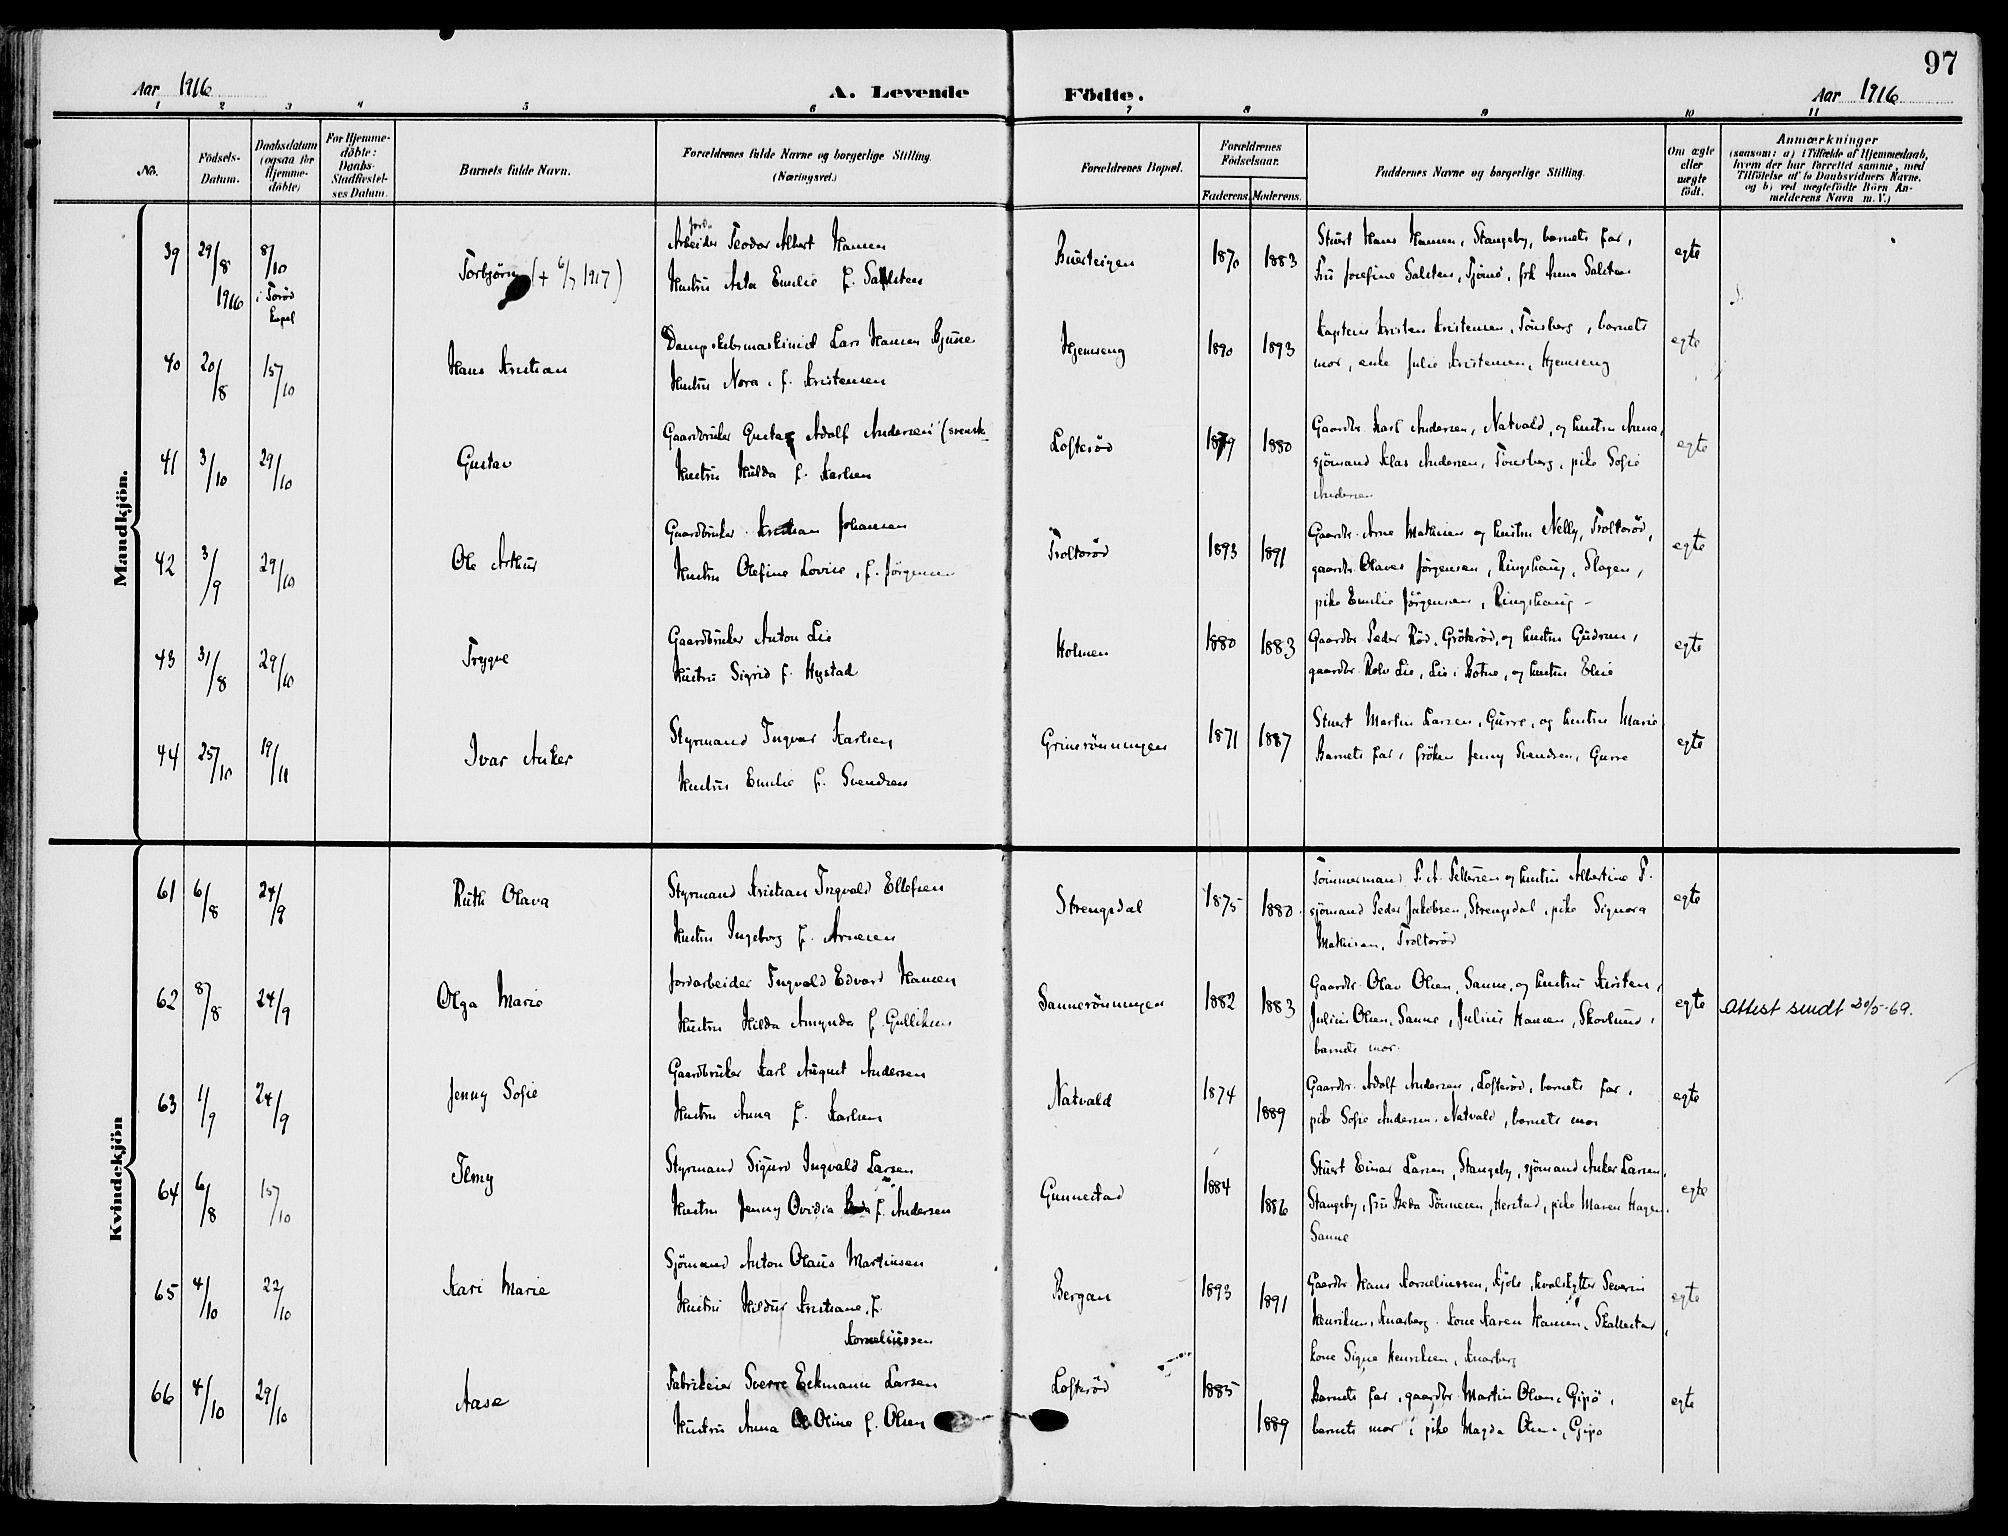 97
Aar 1916
A. Levende
Födte.
Aar 1916
1 2 3 4 5 6 7 8 9 10 11
No.
Födsels-
Datum.
Daabsdatum
(ogsaa for
Hjemme-
döbte)
For Hjemme-
döbte:
Daabs-
Stadfæstel-
ses Datum.
Barnets fulde Navn.
Forældrenes fulde Navne og borgerlige Stilling.
(Næringsvei.)
Forældrenes Bopæl.
Forældrenes
Födselsaar.
Faderens. Moderens.
Faddernes Navne og borgerlige Stilling.
Om ægte
eller
uægte
födt.
Anmærkninger
(saasom: a) i Tilfælde af Hjemmedaab,
hvem der har forrettet samme, med
Tilföielse af to Daabsvidners Navne,
og b) ved uægtefödte Börn An-
melderens Navn m. V.)
Mandkjön.
39 29/8 1916 8/10 i Torød kapel
Torbjörn († 6/7 1917)
Jord-
Arbeider Teodor Albert Hansen
Hustru Asta Emilie f. Salsten
Bueteigen 1870 1883
Stuert Hans Hansen, Stangeby, barnets far,
Fru Josefine Salsten, Tjømø, frk Anna Salsten
egte
40 20/8 15/10
Hans Kristian
Dampskibsmaskinist Lars Hansen Bjune
Hustru Nora, f. Kristensen
Hjemseng 1890 1893
Kaptein Kristen Kristensen, Tönsberg, barnets
mor, enke Julie Kristensen, Hjemseng
egte
41 3/10 29/10
Gustav
Gaardbruker Gustav Adolf Andersen (svensk
Hustru Hulda f. Karlsen
Lofterød 1879 1880
Gaardbr. Karl Andersen, Natvald, og hustru Anna,
sjömand Klas Andersen, Tönsberg, pike Sofie
Andersen
egte
42 3/9 29/10
Ole Arthur
Gaardbruker Kristian Johansen
Hustru Olefine Lovise, f. Jörgensen
Troltorød 1893 1891
Gaardbr. Arne Mathisen og hustru Nelly, Troltorød,
gaardbr. Olaves Jörgensen, Ringshaug, Slagen,
pike Emilie Jörgensen, Ringshaug -
egte
43 31/8 29/10
Trygve
Gaardbruker Anton Lie
Hustru Sigrid f. Hystad
Holmen 1880 1883
Gaardbr. Peder Rød, Gröterød, og hustru Gudrun,
gaardbr. Rolv Lie, Lie i Botne, og hustru Elise
egte
44 25/10 19/11
Ivar Anker
Styrmand Ingvar Karlsen
Hustru Emilie f. Svendsen
Grimsrönningen 1871 1887
Stuert Martin Larsen, Gurre, og hustru Marie
Barnets far, fröken Jenny Svendsen, Gurre
egte
Kvindekjön
61 6/8 24/9
Ruth Olava
Styrmand Kristian Ingvald Ellefsen
Hustru Ingeborg f. Arnesen
Strengsdal 1875 1880
Tömmermand P. A. Pettersen og hustru Albertine P.
sjömand Peder Jakobsen, Strengsdal, pike Signora
Mathisen, Troltorød
egte
62 8/8 24/9
Olga Marie
Jordarbeider Ingvald Edvard Hansen
Hustru Hilda Amynda f. Gulliksen
Sannerönningen 1882 1883
Gaardbr. Olav Olsen, Sanne, og hustru Kirsten,
Julius Olsen, Sanne, Julius Hansen, Skovlund,
barnets mor.
egte
Attest sendt 20/5-69.
63 1/9 24/9
Jenny Sofie
Gaardbruker Karl August Andersen
Hustru Anna f. Karlsen
Natvald 1874 1889
Gaardbr. Adolf Andersen, Lofterød, barnets far,
pike Sofie Andersen, Natvald, barnets mor
egte
64 6/8 15/10
Jenny
Styrmand Sigurd Ingvald Larsen
Hustru Jenny Ovidia f. Andersen
Gunnestad 1884 1886
Stuert Einar Larsen, Stangeby, sjömand Anker Larsen,
Stangeby, fru Beda Tönnesen, Herstad, pike Maren Hagen,
Sanne
egte
65 4/10 22/10
Kari Marie
Sjömand Anton Olaus Martinsen
Hustru Hildur Kristiane, f.
Korneliussen
Bergan 1893 1891
Gaardbr. Hans Korneliussen, Kjöle, hvalskytter Severin
Henriksen, Knarberg. kone Karen Hansen, Skallestad,
kone Signe Henriksen, Knarberg
egte
66 4/10 29/10
Aase
Fabrikeier Sverre Eckmann Larsen
Hustru Anna Oline f. Olsen
Lofterød 1885 1889
Barnets far, gaardbr. Martin Olsen, Gipö,
barnets mor, pike Magda Olsen, Gipö
egte